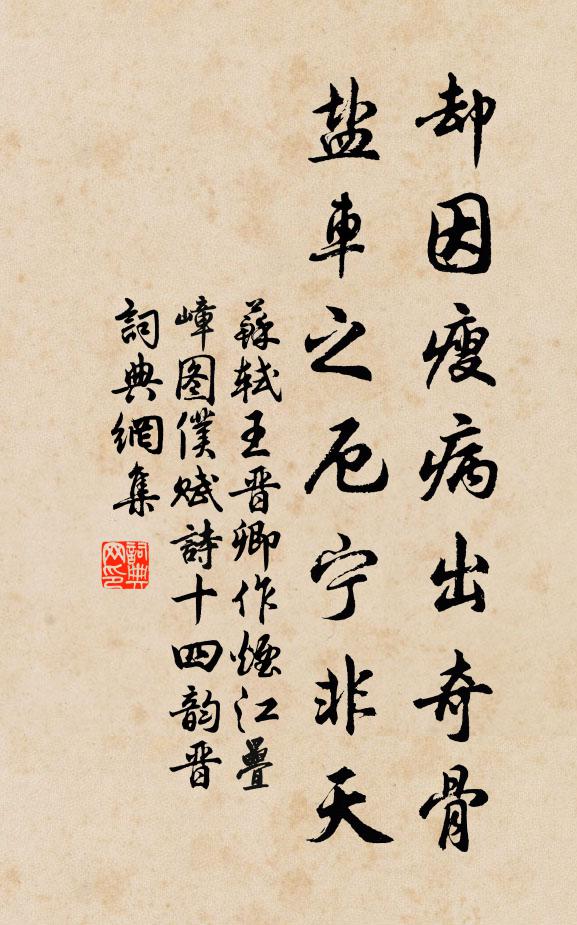 却因瘦病出奇骨
盐車之厄宁非天
蘇軾王晋卿作煙江疊
嶂图僕赋詩十四韵晋
詞典網集
詞典
网印